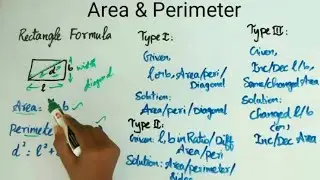 Area & Perimeter
Rectangle Formula
d
b
width
diagonal
l
Area: b
Perimeter
d²: l²+
Type I:
Given,
l & b, Area/peri/
Diagonal
Solution:
Area/peri/Diagonal
Type II:
Given: l, b in Ratio/Diff
Area/peri
Solution: Area/perimeter/
Sides
Type III:
Given,
Inc/Dec l/b,
Same/changed Area
Solution:
Changed l/b
(or)
Inc/Dec Area